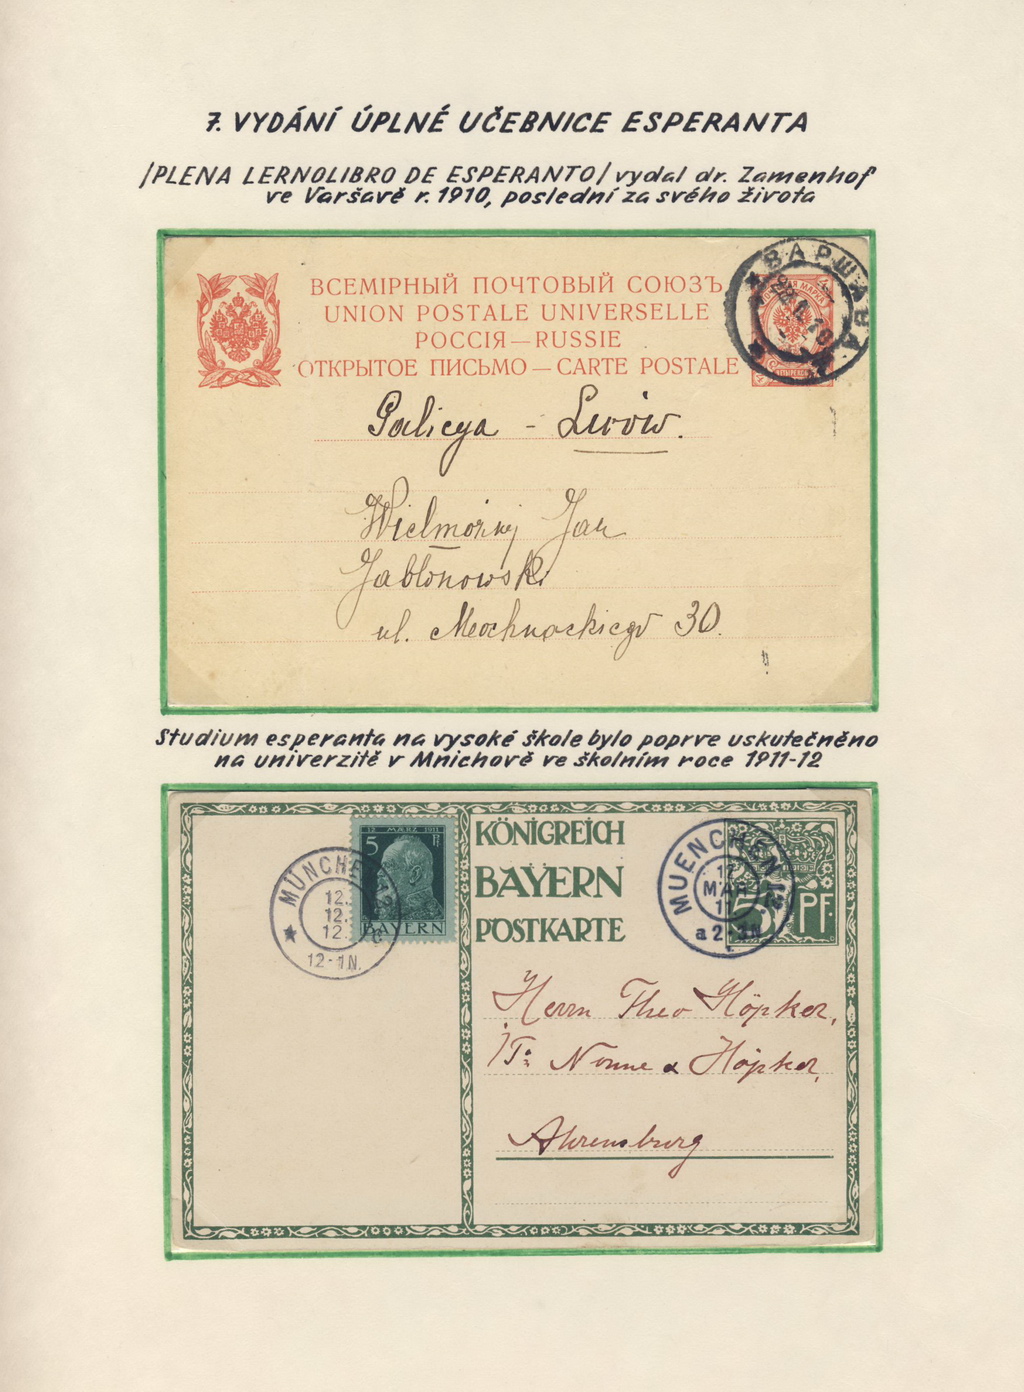 7. VYDÁNÍ ÚPLNÉ UČEBNICE ESPERANTA
/PLENA LERNOLIBRO DE ESPERANTO/ vydal dr. Zamenhof
ve Varšavě r. 1910, poslední za svého života
ВСЕМІРНЫЙ ПОЧТОВЫЙ СОЮЗЪ
UNION POSTALE UNIVERSELLE
РОССІЯ — RUSSIE
ОТКРЫТОЕ ПИСЬМО — CARTE POSTALE
ВАРШАВА
МАРКА
Galicya - Lwów.
Wielmożny Jan
Jabłonowski
ul. Mochnackiego 30.
Studium esperanta na vysoké škole bylo poprve uskutečněno
na univerzitě v Mnichově ve školním roce 1911-12
12 MÄRZ 1911
5 Pf
BAYERN
MÜNCHEN
12.
12.
12.
12-1N.
KÖNIGREICH
BAYERN
POSTKARTE
MUENCHEN
12
MAR
11
a 2-3N
5 PF
Herrn Theo Höpker,
Nonne & Höpker,
Ahrensburg